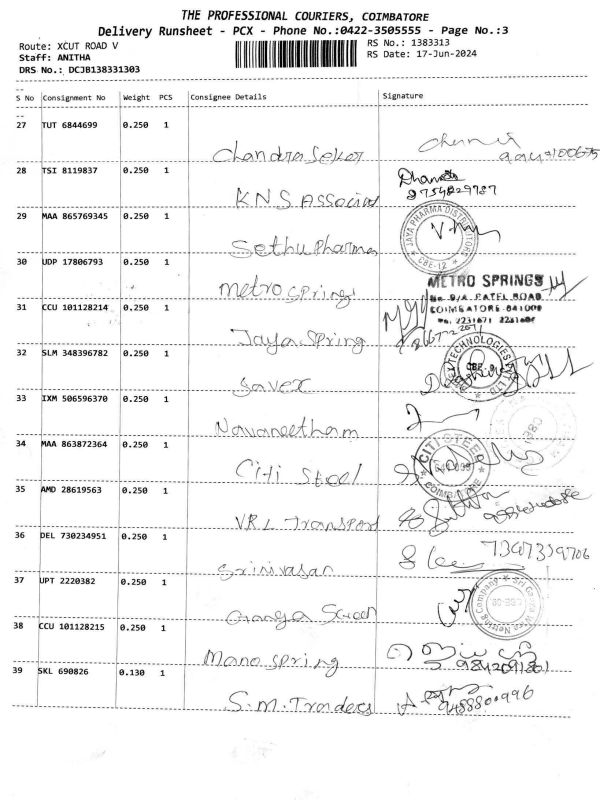 THE PROFESSIONAL COURIERS, COIMBATORE
Delivery Runsheet - PCX - Phone No.:0422-3505555 - Page No.:3
Route: XCUT ROAD V
RS No.: 1383313
Staff: ANITHA
RS Date: 17-Jun-2024
DRS No.: DCJB138331303
S No Consignment No Weight PCS Consignee Details Signature
27 TUT 6844699 0.250 1
Chandra Seker
28 TSI 8119837 0.250 1
KNS Associas
9754829787
29 MAA 865769345 0.250 1
Sethu Pharma
JAYA PHARMA DISTRIBUTORS
CBE-12
30 UDP 17806793 0.250 1
Metro Spring
METRO SPRINGS
No. 9/A. PATEL ROAD
COIMBATORE-641009
31 CCU 101128214 0.250 1
Jaya Spring
32 SLM 348396782 0.250 1
Savex
33 IXM 506596370 0.250 1
Navaneetham
34 MAA 863872364 0.250 1
Citi Steel
CITI STEEL
COIMBATORE
35 AMD 28619563 0.250 1
VRL Transport
36 DEL 730234951 0.250 1
Srinivasan
7347359706
37 UPT 2220382 0.250 1
Ganga Steel
38 CCU 101128215 0.250 1
Mano Spring
39 SKL 690826 0.130 1
S.M. Traders